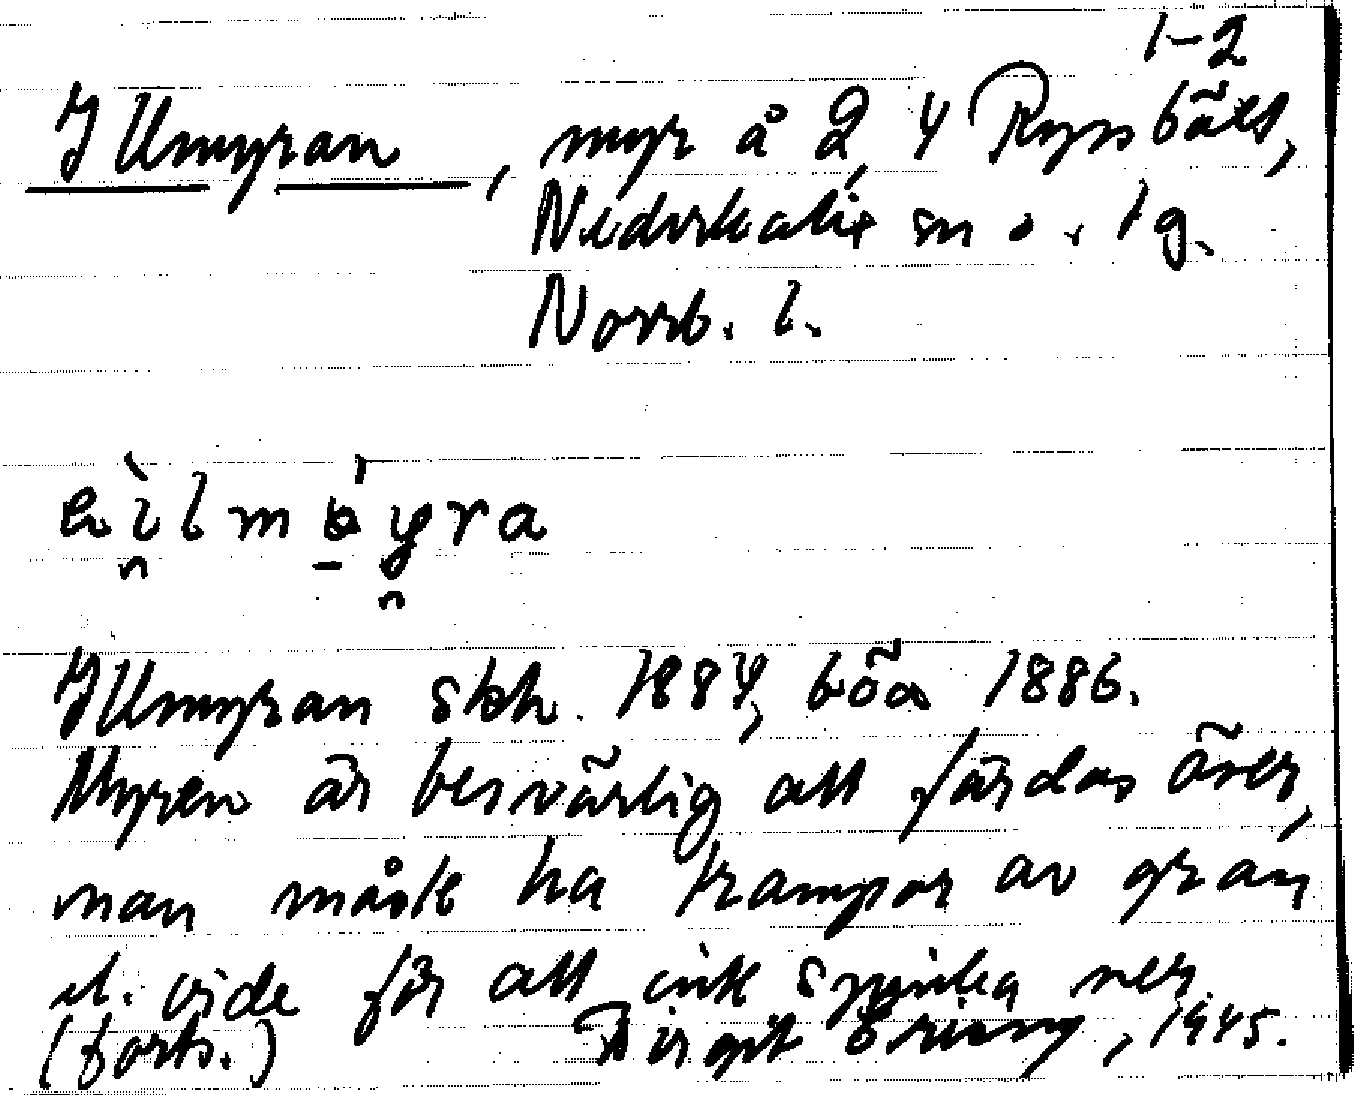 1-2
Illmyran, myr å 2, 4 Rysbält,
Nederkalix sn o. tg.
Norrb. l.
Illmyran skh. 1884, böa 1886.
Myren är besvärlig att färdas över,
man måste ha trampor av gran
el. vide för att inte sjunka ner.
(forts.) Birgit Ering, 1945.